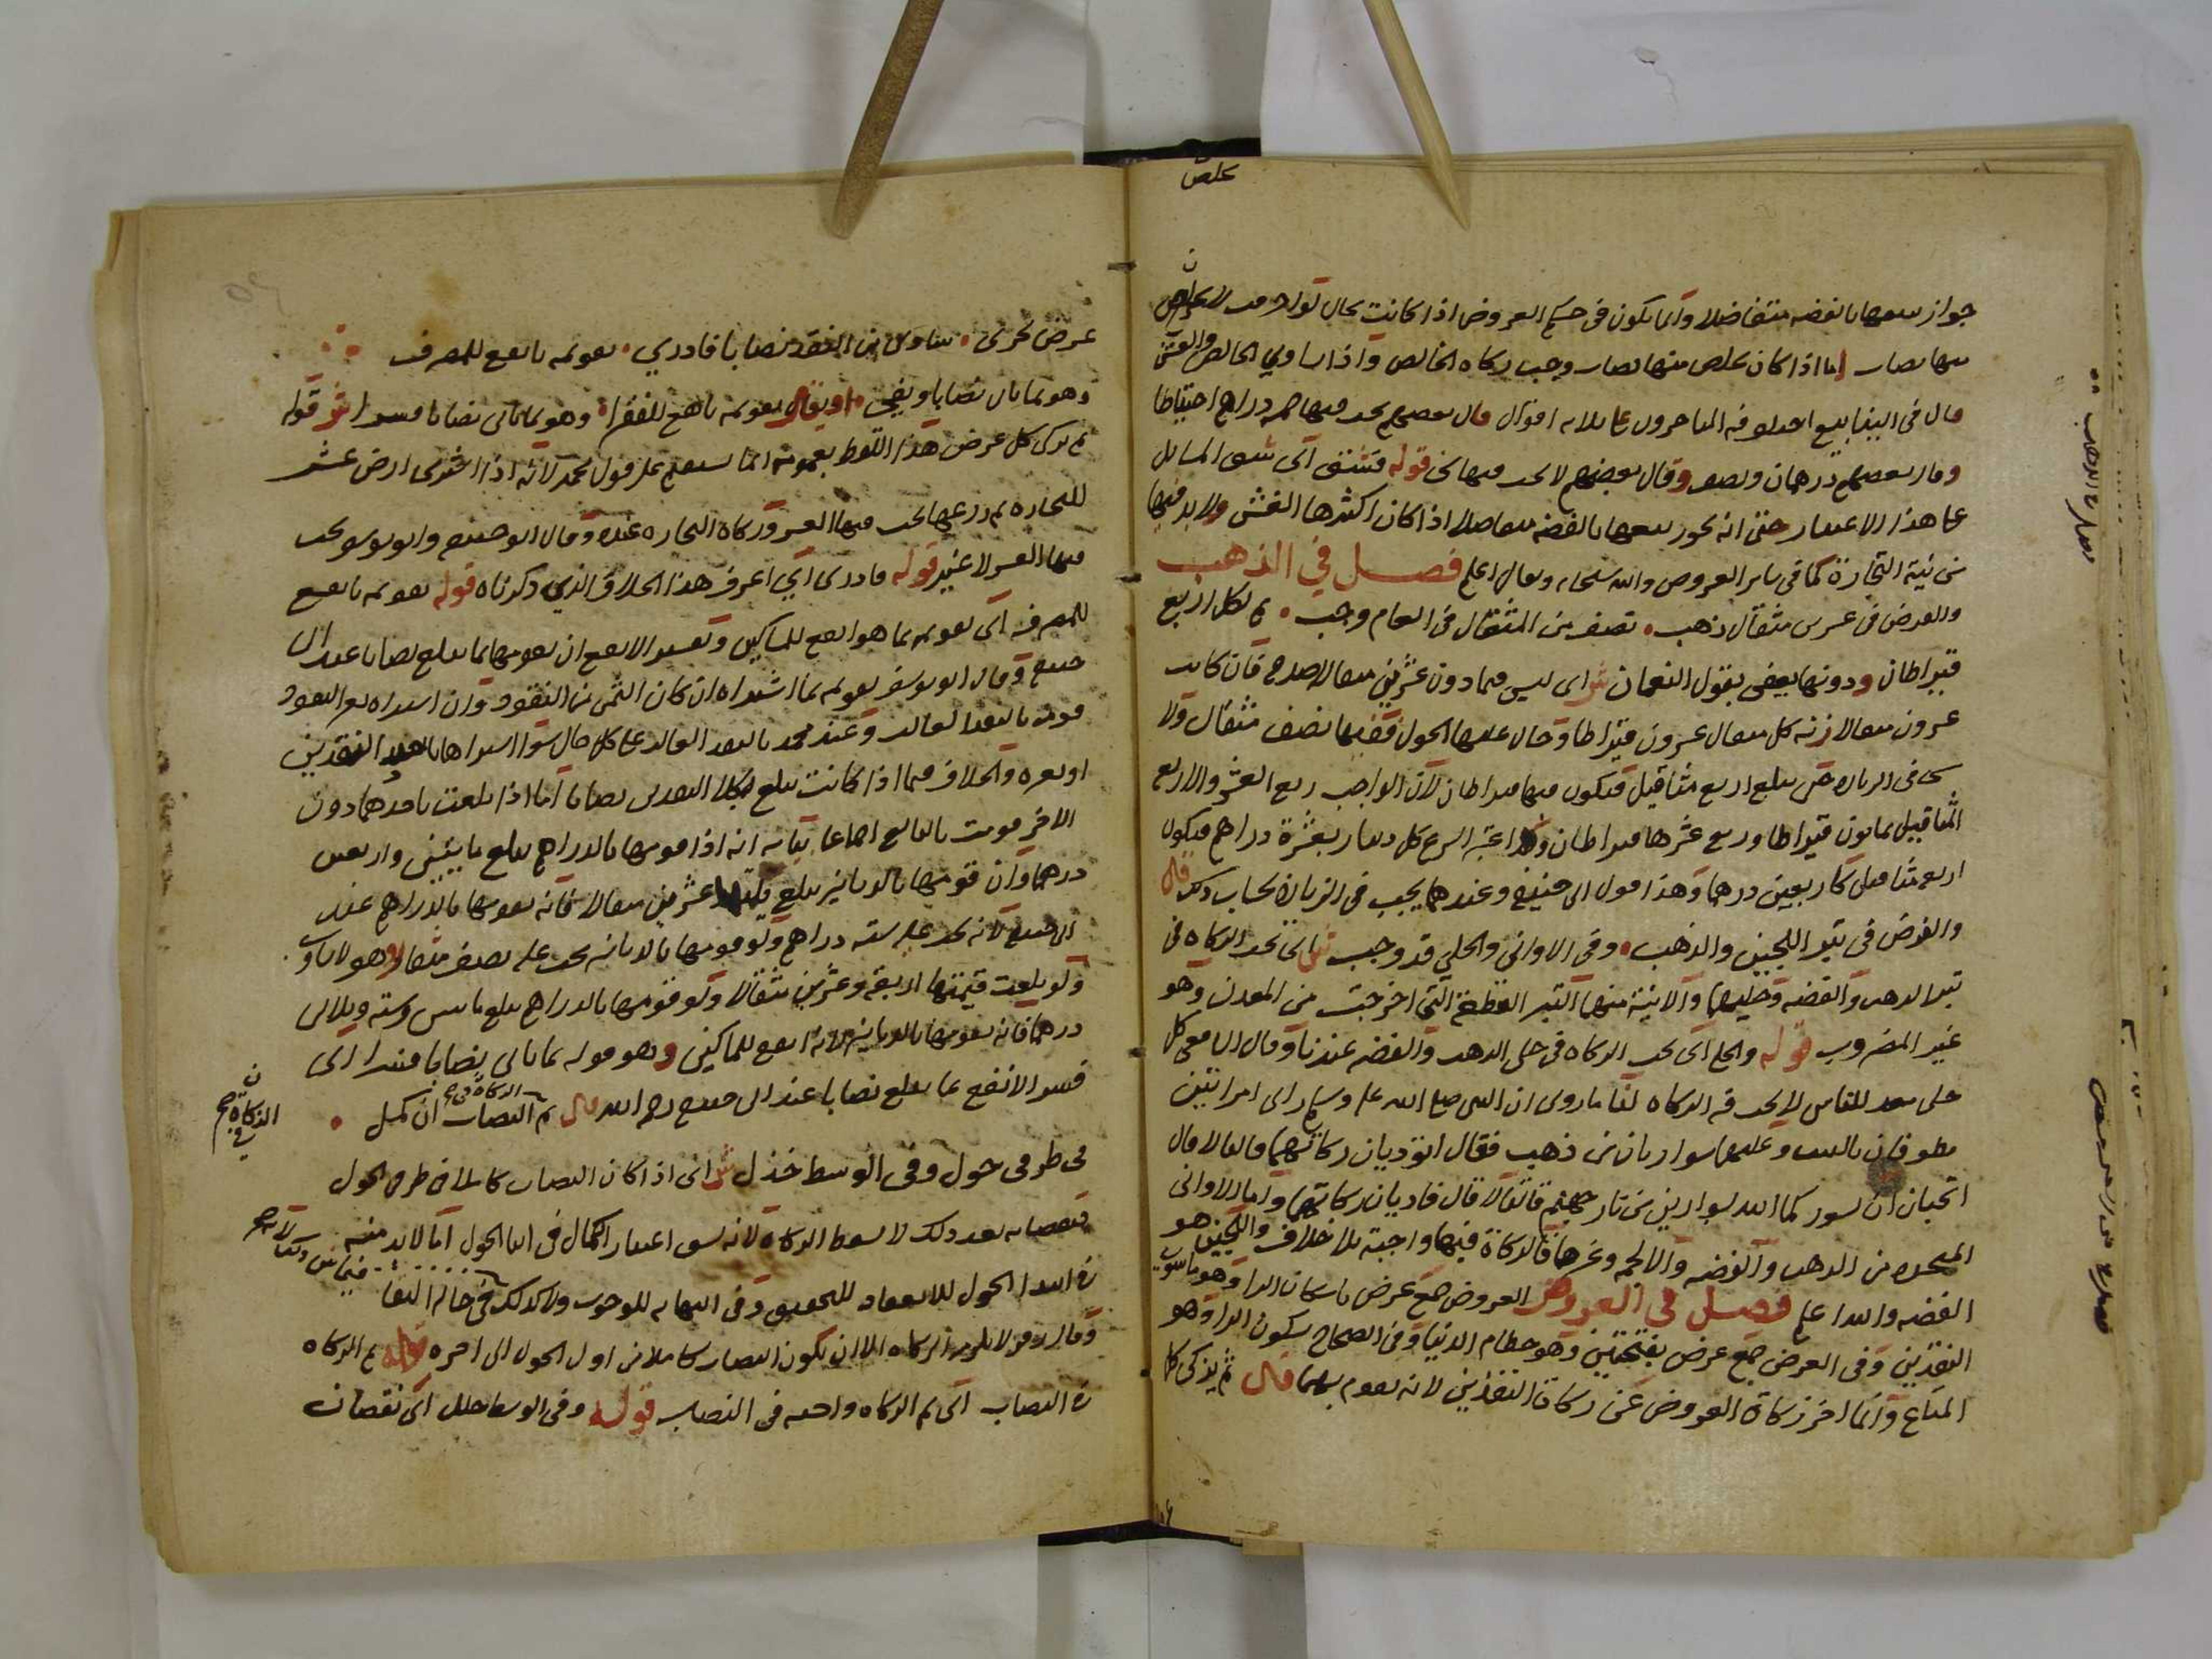 جواز بيعها بالفضة متفاضلا وانما يكون في حكم العروض اذا كانت بحال لو احرقت لا يخلص
منها نصاب اما اذا كان يخلص منها نصاب وجب زكاة الخالص واذا تساوى الخالص والغش
قال في الينابيع اختلف فيه المتاخرون على ثلاثة اقوال قال بعضهم يجب فيها خمسة دراهم احتياطا
وقال بعضهم درهمان ونصف وقال بعضهم لا يجب فيها شي قوله
على هذا الاعتبار حتى انه يجوز بيعها بالفضة متفاضلا اذا كان اكثرها الغش ولابد فيها
من نية التجارة كما في ساير العروض والله سبحانه وتعالى اعلم فصل في الذهب
والفرض في عشرين مثقال ذهب نصف من المثقال في العام وجب ثم لكل اربع
قيراطان ودونها يعفى بقول النعمان ش اى ليس فيما دون عشرين مثقالا صدقة فان كانت
عشرون مثقالا زنة كل مثقال عشرون قيراطا وحال عليها الحول ففيها نصف مثقال ولا
شي في الزيادة حتى يبلغ اربع مثاقيل فيكون فيها قيراطان لان الواجب ربع العشر والاربع
المثاقيل ثمانون قيراطا وربع عشرها قيراطان وقد اعتبر الشرع كل دينار بعشرة دراهم فيكون
اربع مثاقيل كاربعين درهما وهذا قول ابي حنيفة وعندهما يجب في الزيادة بحساب ذلك قال
والفرض في تبر اللجين والذهب وفي الاواني والحلي قد وجب ش اى تجب الزكاة في
تبر الذهب والفضة وحليهما والانية منها التبر القطعة التي اخرجت من المعدن وهو
غير المضروب قوله والحلي اى تجب الزكاة في حلي الذهب والفضة عندنا وقال الشافعي كل
حلي معد للباس لا يجب فيه الزكاة لنا ما روى ان النبي صلى الله عليه وسلم راى امراتين
يطوفان بالبيت وعليهما سواران من ذهب فقال اتوديان زكاتهما قالتا لا قال
اتحبان ان يسوركما الله بسوارين من نار جهنم قالتا لا قال فاديا زكاتهما واما الاواني
المتخذة من الذهب والفضة والالجمة وغيرها فالزكاة فيها واجبة بلا خلاف واللجين هو
الفضة والله اعلم فصل في العروض العروض جمع عرض باسكان الراء وهو ما سوى
النقدين وفي العرض جمع عرض بفتحتين وهو حطام الدنيا وفي الصحاح بسكون الراء وهو
المتاع وانما اخر زكاة العروض عن زكاة النقدين لانه تقوم بهما قال ثم يزكى كل
عرض تجرى ساوى من النقد نصابا فادري تقويمه بانفع للمصرف
وهو بما نال نصابا ويفي او يقال تقويمه بانفع للفقرا وهو بما نالى نصابا ش قوله
ثم يزكى كل عرض هذا اللفظ بعمومه انما يستقيم على قول محمد لانه اذا اشترى ارض عشر
للتجارة ثم زرعها تجب فيها العشر وزكاة التجارة عنده وقال ابو حنيفة وابو يوسف يجب
فيها العشر لا غير قوله فادرى اى اعرف هذا الخلاف الذي ذكرناه قوله تقويمه بانفع
للمصرف اى تقويمه بما هو انفع للمساكين وتفسير الانفع ان يقومها بما يبلغ نصابا عند ابي
حنيفة وقال ابو يوسف يقومه بما اشتراه ان كان الثمن من النقود وان اشتراه بغير النقود
قومه بالنقد الغالب وعند محمد بالنقد الغالب على كل حال سوا اشتراها باحد النقدين
او بغيره والخلاف فيما اذا كانت تبلغ بكلا النقدين نصابا اما اذا بلغت باحدهما دون
الاخر قومت بالبالغ اجماعا بيانه انه اذا قومها بالدراهم يبلغ مايتين واربعين
درهما وان قومها بالدنانير يبلغ عشرين مثقالا فانه يقومها بالدراهم عند
ابي حنيفة لانه يجب عليه ستة دراهم ولو قومها بالدنانير يجب عليه نصف مثقال وهو لا يساوي
ولو بلغت قيمتها اربعة وعشرين مثقالا ولو قومها بالدراهم يبلغ مايتين وستة وثلاثين
درهما فانه يقومها بالدنانير لانه انفع للمساكين وهو قوله بما نالى نصابا
فسر الانفع بما يبلغ نصابا عند ابي حنيفة رحمه الله قال ثم النصاب ان كمل
الزكاة في
في طرفى حول وفي الوسط خذل ش اى اذا كان النصاب كاملا في طرفى الحول
فنقصانه بعد ذلك لا يسقط الزكاة لانه يشق اعتبار الكمال في اثنا الحول اما لابد منه
في ابتدا الحول للانعقاد للتحقيق وفي انتهايه للوجوب ولا كذلك في حالة البقا
وقال زفر لا يلزمه الزكاة الا ان يكون النصاب كاملا من اول الحول الى اخره قوله ثم الزكاة
في النصاب اى ثم الزكاة واجبة في النصاب قوله وفي الوسط خلل اى نقصان